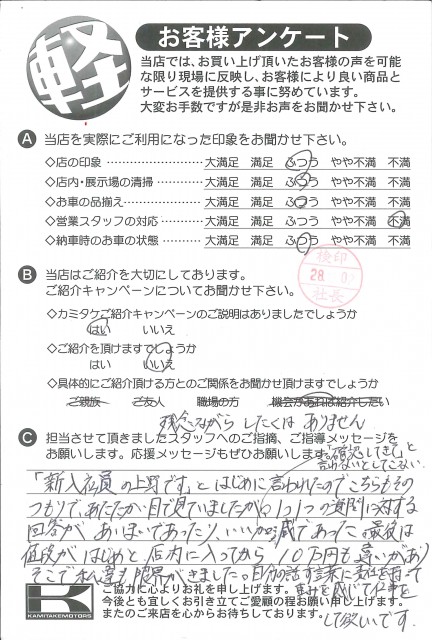 軽
お客様アンケート
当店では、お買い上げ頂いたお客様の声を可能
な限り現場に反映し、お客様により良い商品と
サービスを提供する事に努めています。
大変お手数ですが是非お声をお聞かせ下さい。
A 当店を実際にご利用になった印象をお聞かせ下さい。
◇店の印象 大満足 満足 ふつう やや不満 不満
◇店内・展示場の清掃 大満足 満足 ふつう やや不満 不満
◇お車の品揃え 大満足 満足 ふつう やや不満 不満
◇営業スタッフの対応 大満足 満足 ふつう やや不満 不満
◇納車時のお車の状態 大満足 満足 ふつう やや不満 不満
検印
28.
社長
B 当店はご紹介を大切にしております。
ご紹介キャンペーンについてお聞かせ下さい。
◇カミタケご紹介キャンペーンのご説明はありましたでしょうか
はい いいえ
◇ご紹介を頂けますでしょうか
はい いいえ
◇具体的にご紹介頂ける方とのご関係をお聞かせ頂けますでしょうか
ご親族 ご友人 職場の方 機会があれば紹介したい
残念ながら したくは ありません
C 担当させて頂きましたスタッフへのご指摘、ご指導メッセージを
お願いします。応援メッセージもぜひお願いします。
確認してきて」と
言わないとしてこない。
「新入社員の上野です」とはじめに言われたのでこちらもその
つもりで、あたたか目で見ていましたが、1つ1つの質問に対する
回答が あいまいであったり、いいかげ減であった。最後は
値段が はじめと 店内に入ってから 10万円も 違いがあり
そこで 限界がきました。自分の話す言葉に責任を持って
重みを感じて仕事を
して欲しいです。
ご協力に心よりお礼を申し上げます。
今後とも宜しくお引き立てご愛顧の程お願い申し上げます。
またのご来店を心からお待ちしております。
KAMITAKEMOTORS